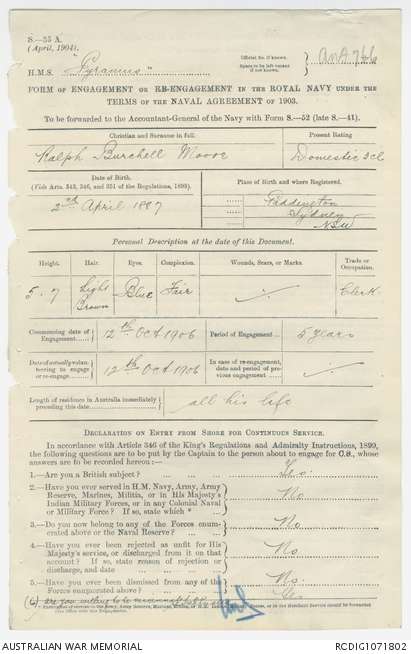 S.—55 A.
(April, 1904).
H.M.S. "Pyramus"
Official No. if known.
Space to be left vacant if not known.
FORM OF ENGAGEMENT OR RE-ENGAGEMENT IN THE ROYAL NAVY UNDER THE
TERMS OF THE NAVAL AGREEMENT OF 1903.
To be forwarded to the Accountant-General of the Navy with Form S.—52 (late S.—41).
Christian and Surname in full.
Present Rating
Ralph Burchell Moore
Domestic 3 cl
Date of Birth.
(Vide Arts. 343, 346, and 351 of the Regulations, 1899).
Place of Birth and where Registered.
2nd April 1887
Paddington
Sydney
NSW
Personal Description at the date of this Document.
Height.
Hair.
Eyes.
Complexion.
Wounds, Scars, or Marks.
Trade or Occupation.
5.7
Light Brown
Blue
Fair
Clerk
Commencing date of Engagement
12th Oct 1906
Period of Engagement
5 years
Date of actually volunteering to engage or re-engage
12th Oct 1906
In case of re-engagement, date and period of previous engagement
Length of residence in Australia immediately preceding this date
all his life
DECLARATION ON ENTRY FROM SHORE FOR CONTINUOUS SERVICE.
In accordance with Article 346 of the King's Regulations and Admiralty Instructions, 1899,
the following questions are to be put by the Captain to the person about to engage for C.S., whose
answers are to be recorded herein:—
1.—Are you a British subject?
Yes
2.—Have you ever served in H.M. Navy, Army, Army
Reserve, Marines, Militia, or in His Majesty's
Indian Military Forces, or in any Colonial Naval
or Military Force? If so, state which *
No
3.—Do you now belong to any of the Forces enumerated
above or the Naval Reserve?
No
4.—Have you ever been rejected as unfit for His
Majesty's service, or discharged from it on that
account? If so, state reason of rejection or
discharge, and date
No
5.—Have you ever been dismissed from any of the
Forces enumerated above?
No
(6)
Yes
AUSTRALIAN WAR MEMORIAL
RCDIG1071802